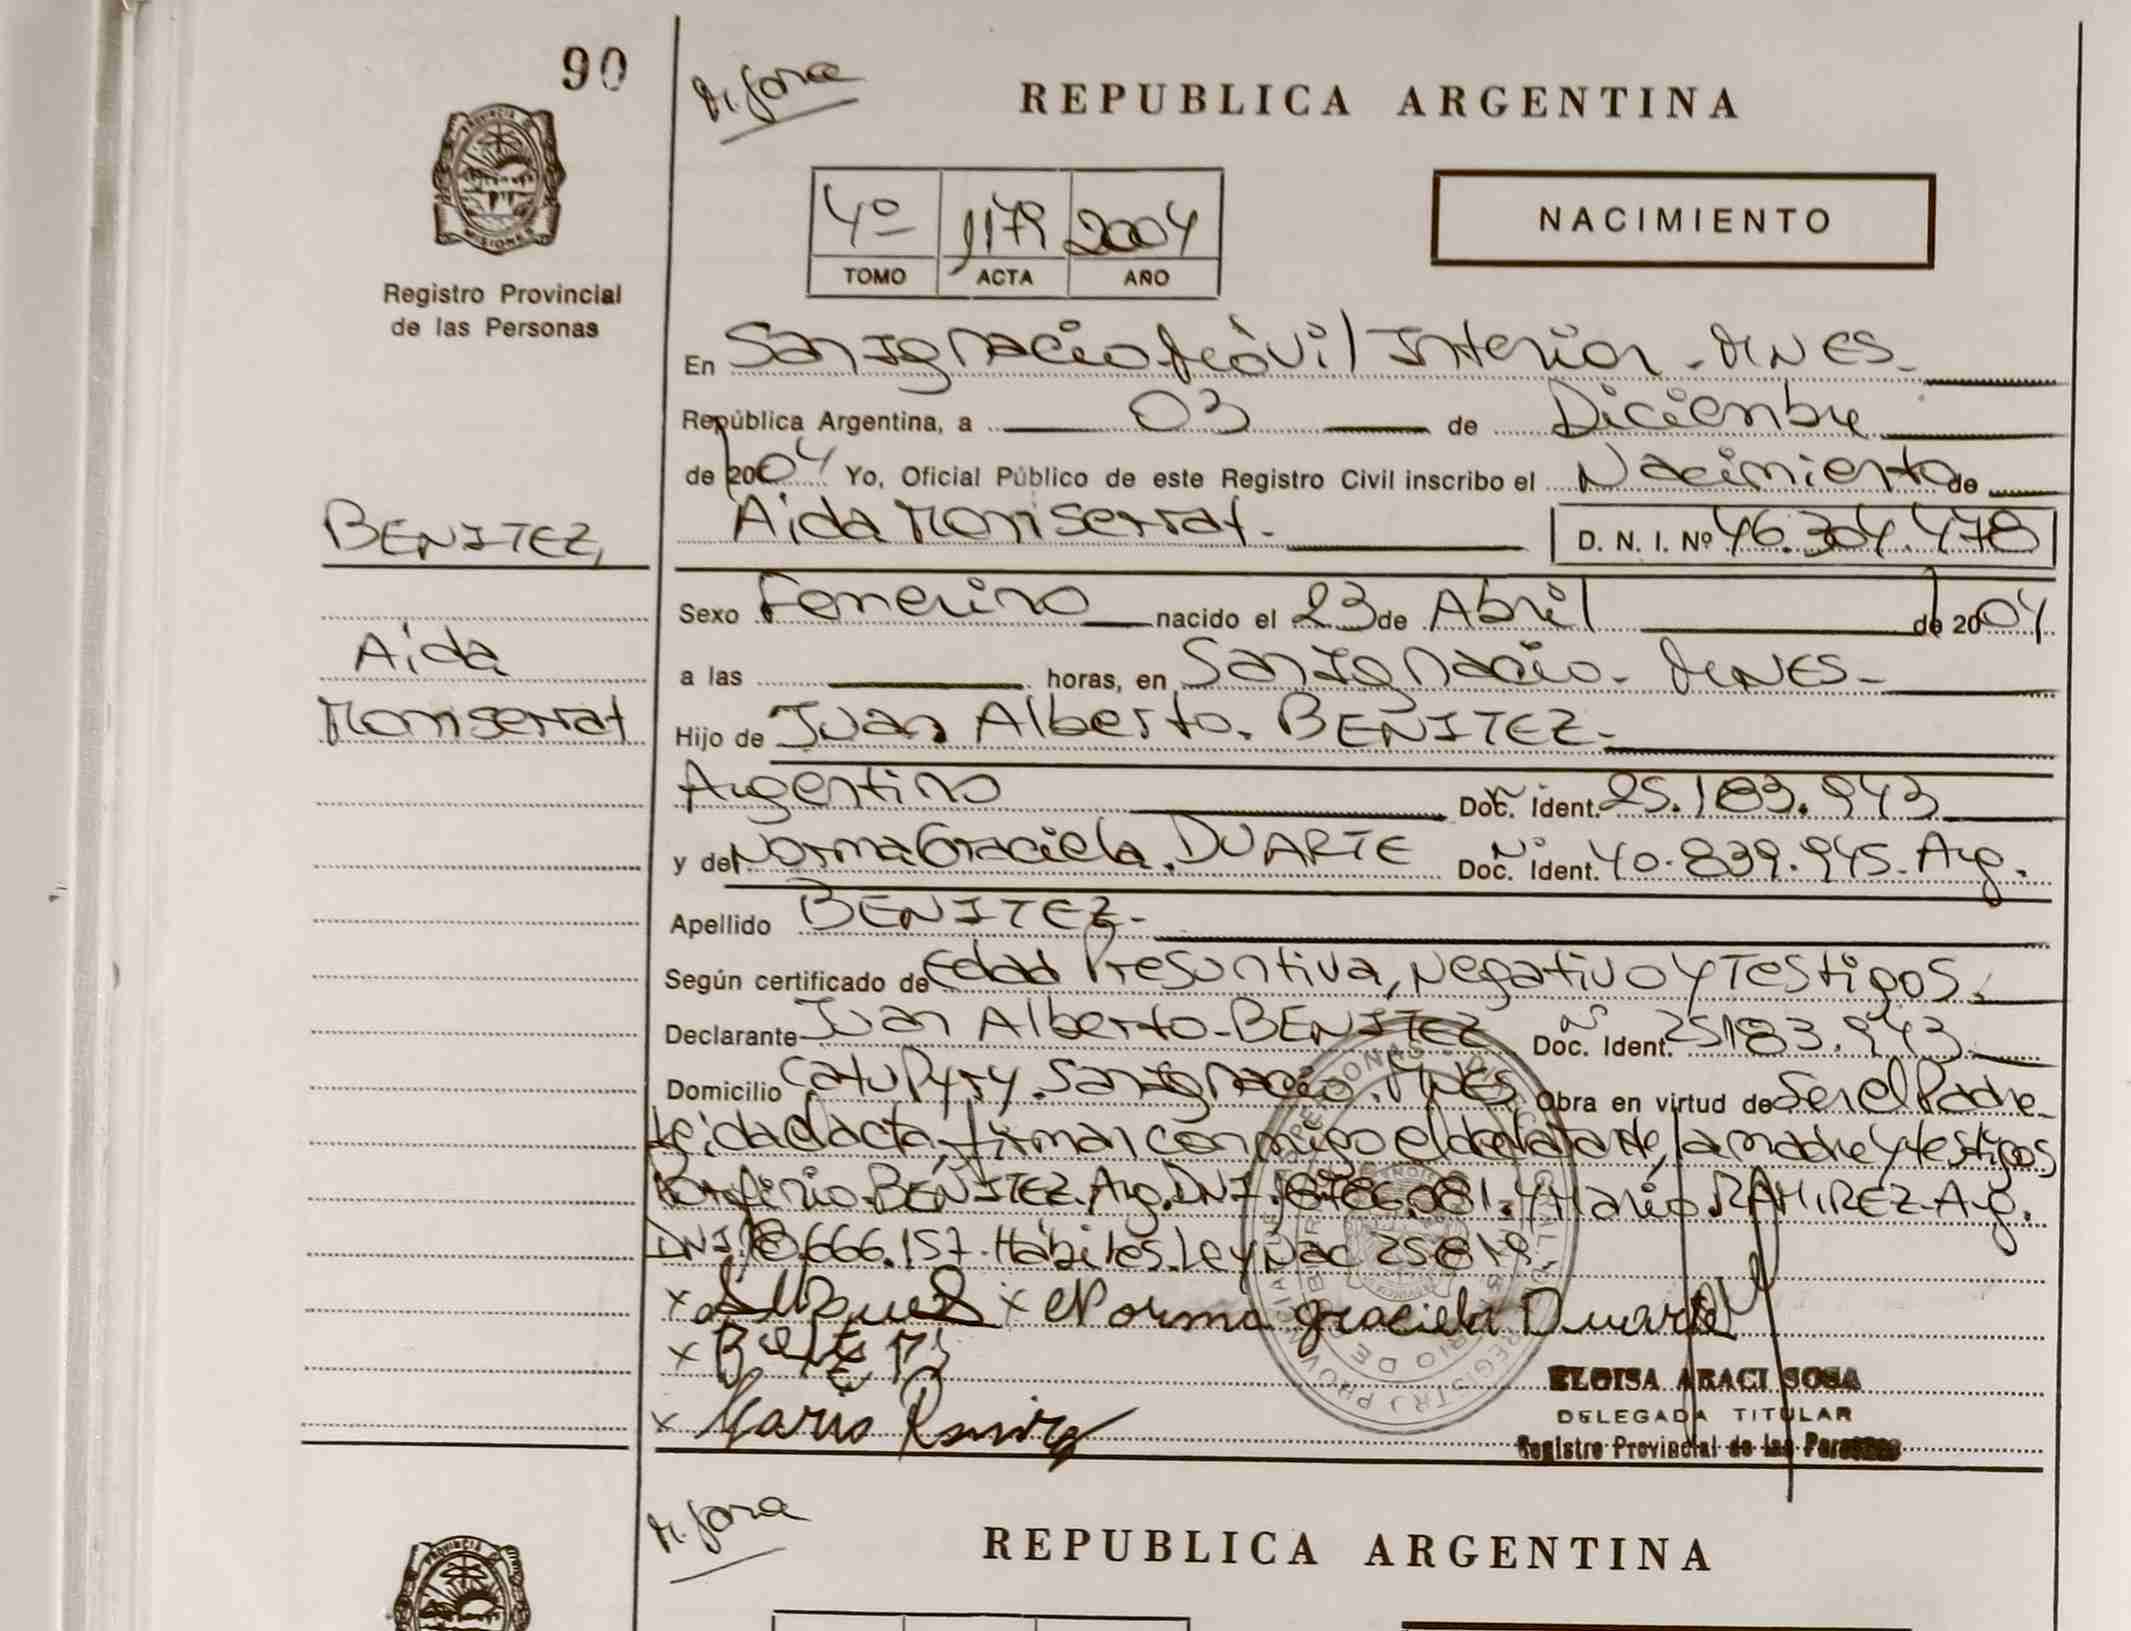 90
M. Jora
REPUBLICA ARGENTINA
PROVINCIA DE
MISIONES
Registro Provincial
de las Personas
4º 1179 2004
TOMO ACTA AÑO
NACIMIENTO
En San Ignacio Móvil Interior - MNES -
República Argentina, a 03 de Diciembre
de 2004 Yo, Oficial Público de este Registro Civil inscribo el Nacimiento de
Aida Monserrat. D. N. I. Nº 46.304.478
BENITEZ,
Aida
Monserrat
Sexo Femenino nacido el 23 de Abril de 2004
a las horas, en San Ignacio - MNES -
Hijo de Juan Alberto. BENITEZ -
Argentino Doc. Ident. 25.183.943
y de Norma Graciela. DUARTE Doc. Ident. 40.839.945. Arg.
Apellido BENITEZ -
Según certificado de Edad Presuntiva, Negativo y Testigos.
Declarante Juan Alberto - BENITEZ Doc. Ident. 25183.943
Domicilio Catupyry. San Ignacio. MNES Obra en virtud de Ser el Padre
Leida el acta, firman conmigo el declarante, la madre y testigos
Porfirio BENITEZ. Arg. DNI. y Mario RAMIREZ - Arg.
DNI 8.666.157. Hábiles. Ley Nac 25819
x x Norma graciela Duarte
x
x Mario Ramirez
ELOISA ARACI SOSA
DELEGADA TITULAR
Registro Provincial de las Personas
M. Jora
REPUBLICA ARGENTINA
PROVINCIA